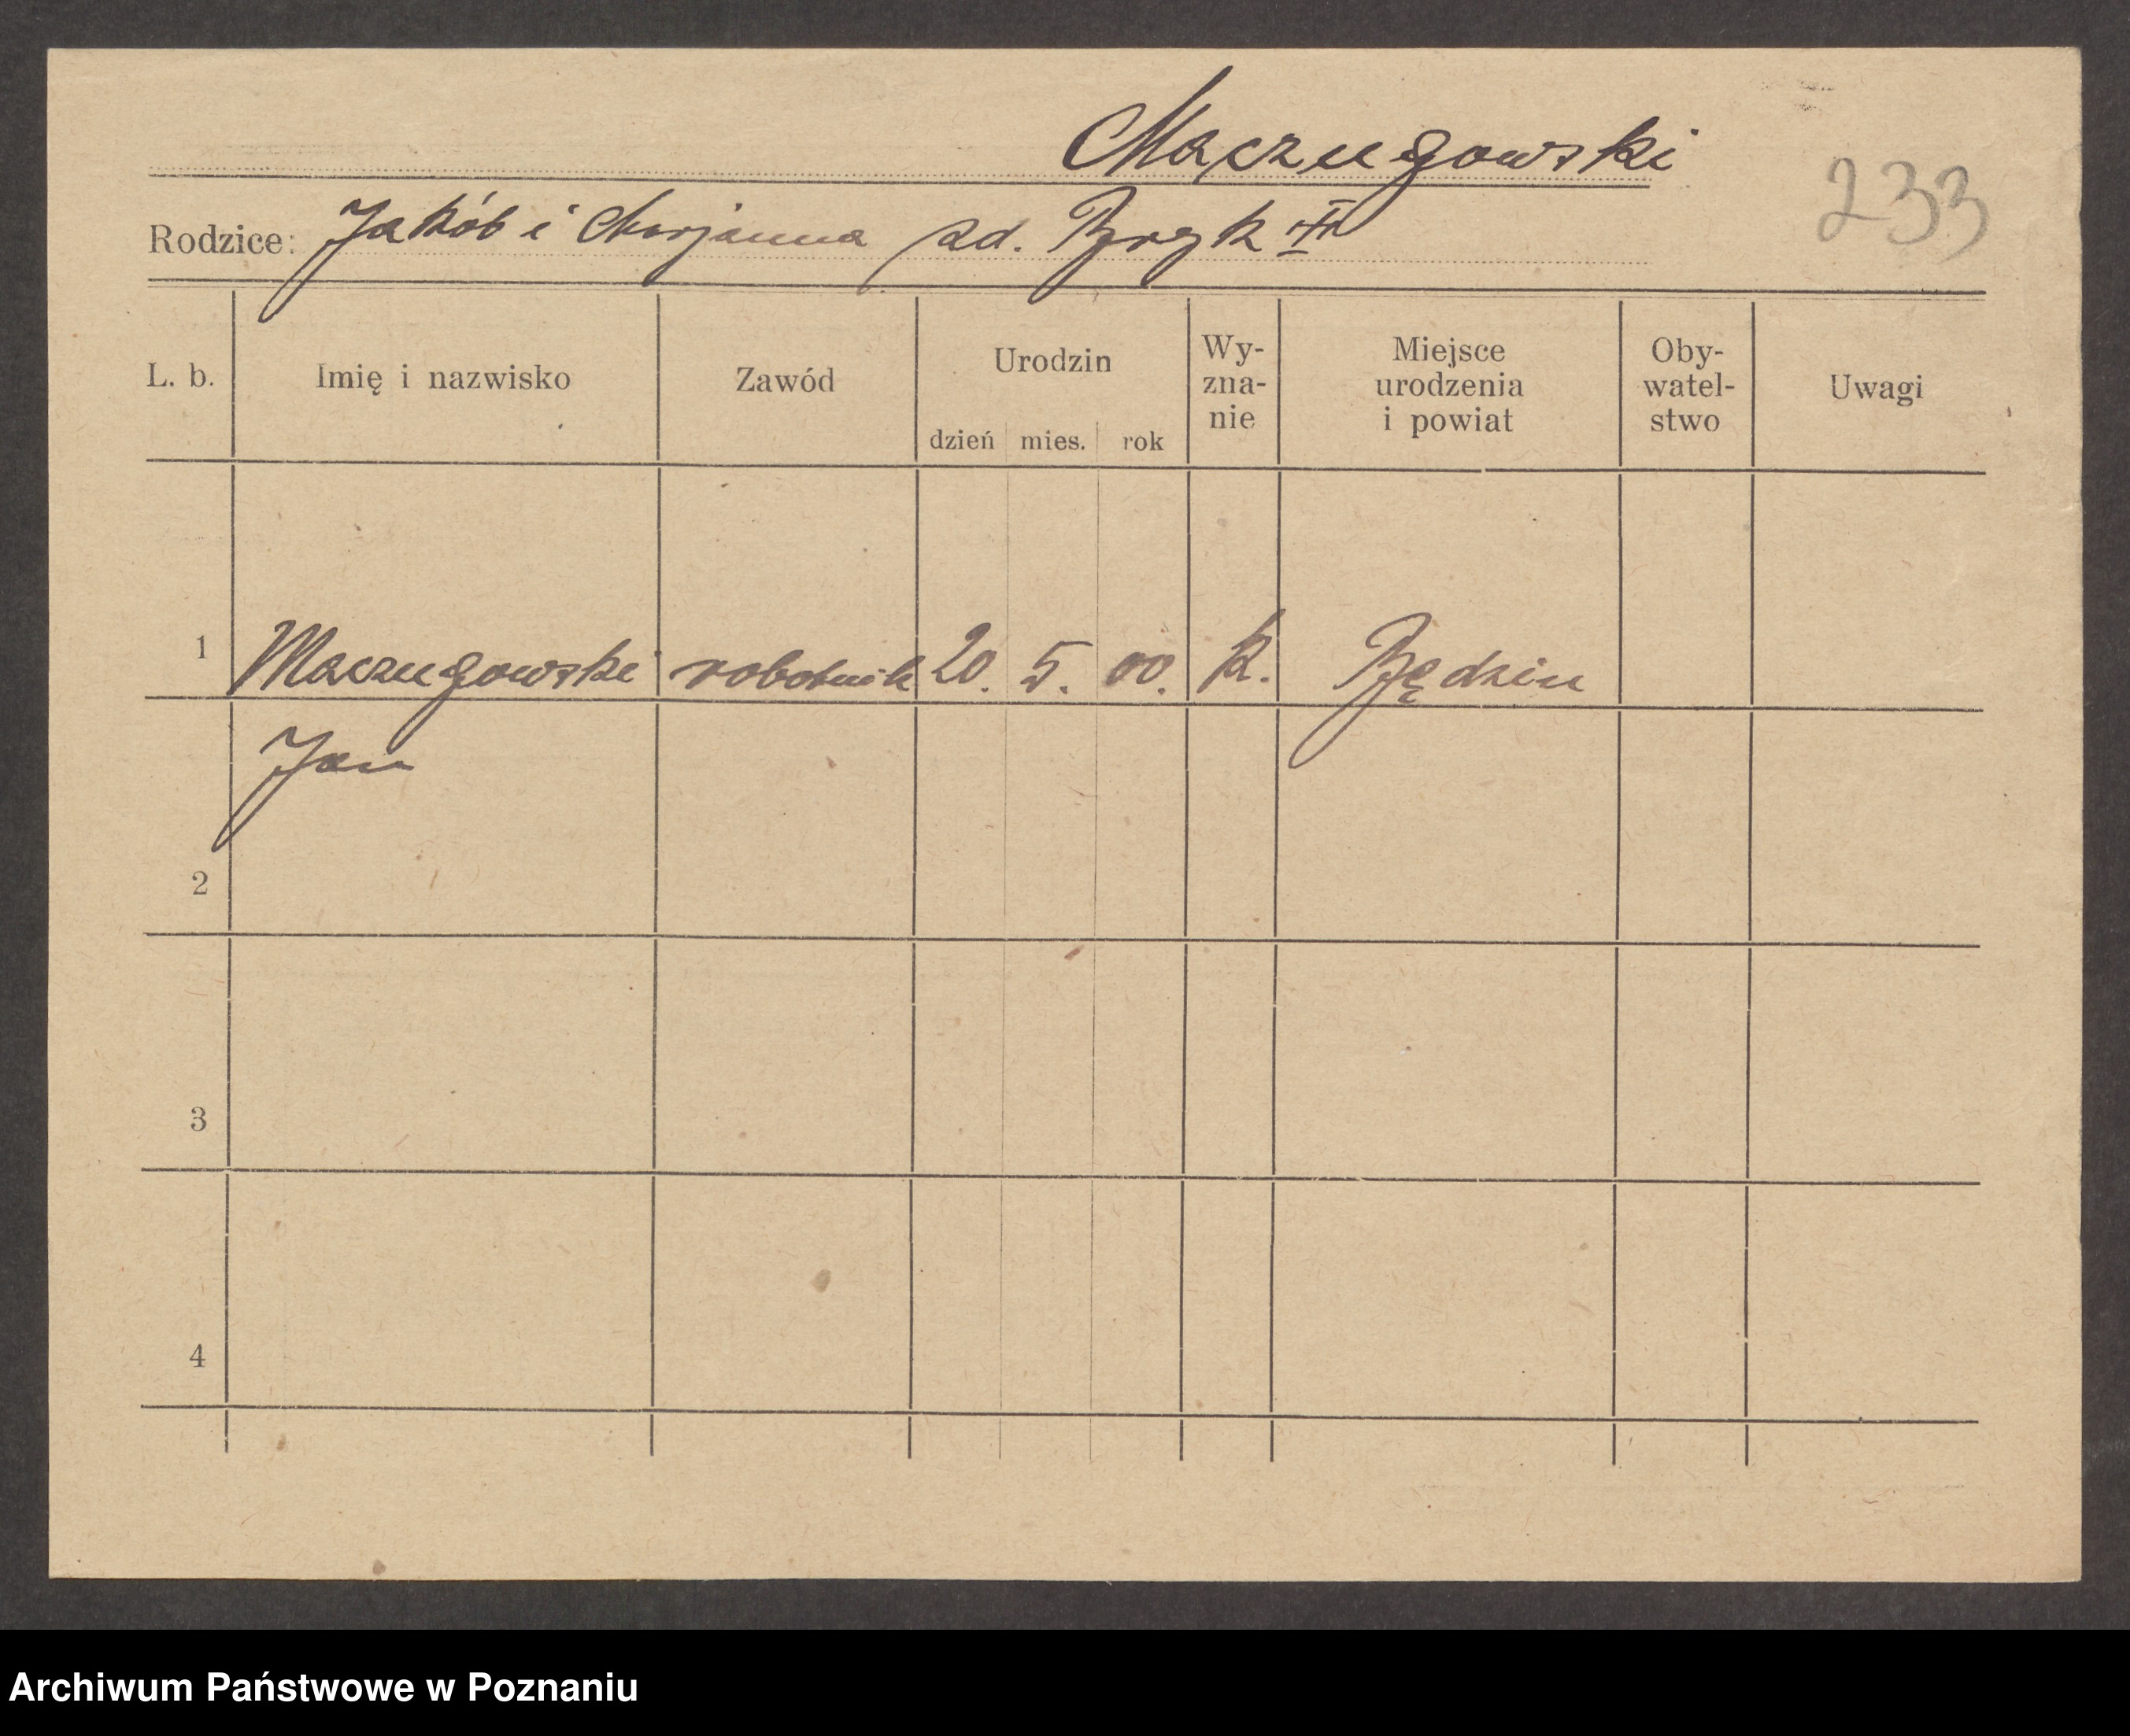 Maczugowski
233
Rodzice: Jakób i Marjanna zd. Bryk
L. b. Imię i nazwisko Zawód Urodzin dzień mies. rok Wy- zna- nie Miejsce urodzenia i powiat Oby- watel- stwo Uwagi
1 Maczugowski robotnik 20. 5. 00. k. Będzin
Jan
2
3
4
Archiwum Państwowe w Poznaniu